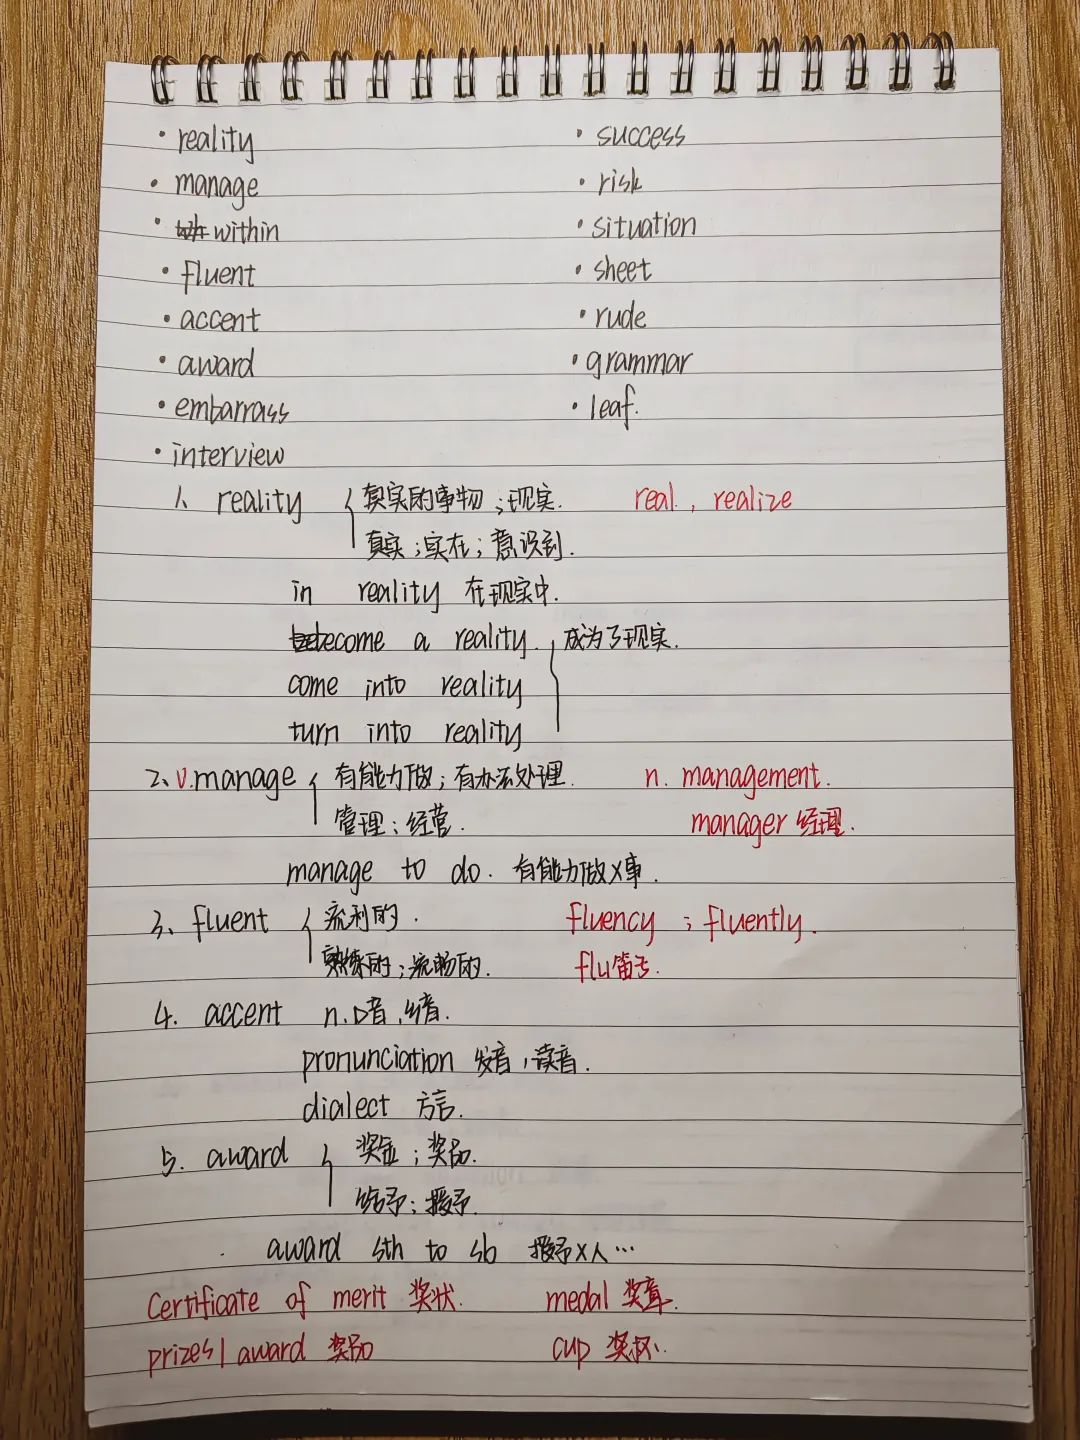 · reality · success
· manage · risk
· within · situation
· fluent · sheet
· accent · rude
· award · grammar
· embarrass · leaf.
· interview
1、 reality { 真实的事物；现实. real , realize
真实；实在；意识到.
in reality 在现实中.
become a reality. 成为了现实.
come into reality
turn into reality
2、v.manage { 有能力做；有办法处理. n. management.
管理；经营. manager 经理.
manage to do. 有能力做X事.
3、fluent { 流利的. fluency ; fluently.
熟练的；流畅的. flu
4. accent n.口音,
pronunciation 发音,读音.
dialect 方言.
5. award { 奖金；奖品.
给予；授予.
award sth to sb 授予X人…
Certificate of merit 奖状. medal 奖章.
prizes/award 奖品 cup 奖杯.